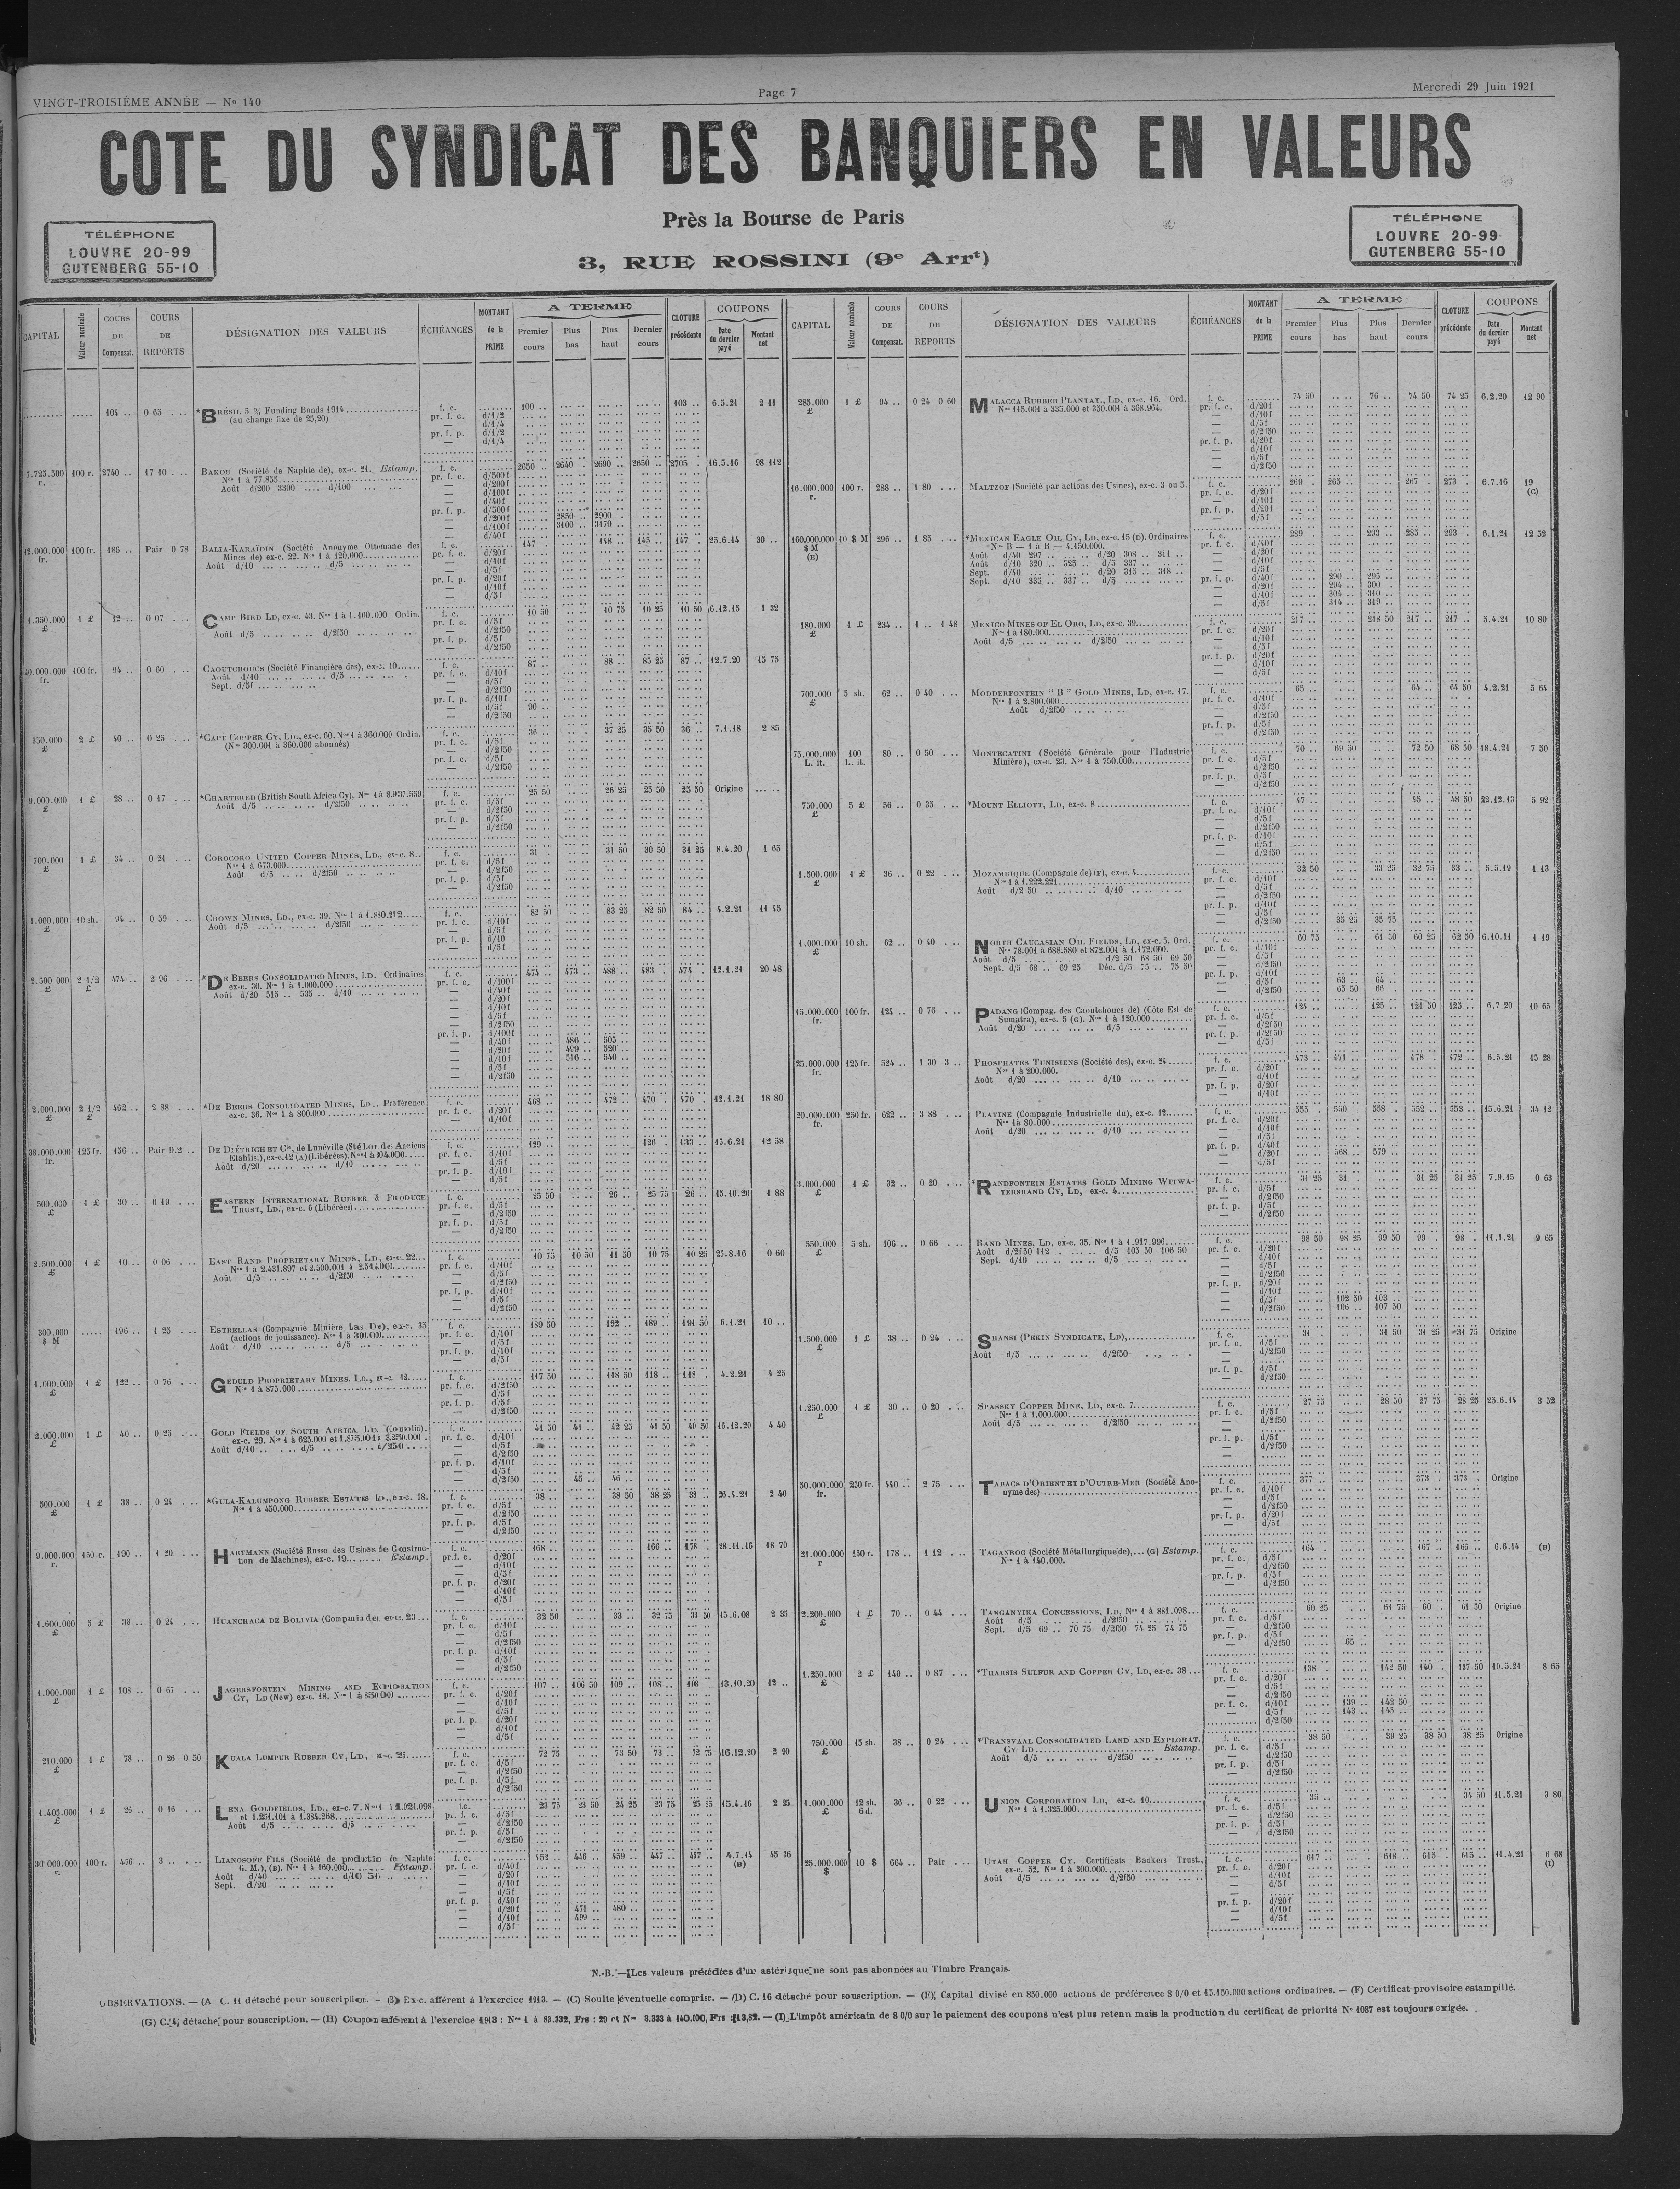 VINGT-TROISIÈME ANNÉE — No 140
Page 7
Mercredi 29 Juin 1921
COTE DU SYNDICAT DES BANQUIERS EN VALEURS
Près la Bourse de Paris
3, RUE ROSSINI (9e Arrt)
TÉLÉPHONE
LOUVRE 20-99
GUTENBERG 55-10
TÉLÉPHONE
LOUVRE 20-99
GUTENBERG 55-10
CAPITAL Valeur nominale COURS DE Compensat. COURS DE REPORTS DÉSIGNATION DES VALEURS ÉCHÉANCES MONTANT de la PRIME A TERME Premier cours Plus bas Plus haut Dernier cours CLOTURE précédente COUPONS Date du dernier payé Montant net
104 .. 0 65 *BRÉSIL 5 % Funding Bonds 1914 f. c. 100 .. 103 .. 6.5.21 2 11
(au change fixe de 25,20)
7.725.500 r. 100 r. 2740 .. 17 10 BAKOU (Société de Naphte de), ex-c. 21. Estamp. f. c. 2650 .. 2640 .. 2690 .. 2650 .. 2705 .. 16.5.16 98 112
Nos 1 à 77.855
Août d/200 3300 .... d/100
pr. f. p. d/200f 2850 .. 2900 ..
d/100f 3100 .. 3170 ..
12.000.000 fr. 100 fr. 186 .. Pair 0 78 BALIA-KARAÏDIN (Société Anonyme Ottomane des f. c. 147 .. 148 .. 145 .. 147 .. 25.6.14 30 ..
Mines de) ex-c. 22. Nos 1 à 120.000
Août d/10 d/5
1.350.000 £ 1 £ 12 .. 0 07 CAMP BIRD LD, ex-c. 43. Nos 1 à 1.100.000 Ordin. f. c. 10 50 10 75 10 25 10 50 6.12.15 1 32
Août d/5 d/2f50
40.000.000 fr. 100 fr. 94 .. 0 60 CAOUTCHOUCS (Société Financière des), ex-c. 10 f. c. 87 .. 88 .. 85 25 87 .. 12.7.20 15 75
Août d/10 d/5
Sept. d/5f
d/5f 90 ..
350.000 £ 2 £ 40 .. 0 25 *CAPE COPPER CY, LD., ex-c. 60. Nos 1 à 360.000 Ordin. f. c. 36 .. 37 25 35 50 36 .. 7.1.18 2 85
(Nos 300.001 à 360.000 abonnés)
9.000.000 £ 1 £ 28 .. 0 17 *CHARTERED (British South Africa Cy), Nos 1 à 8.937.559 f. c. 25 50 26 25 25 50 25 50 Origine
Août d/5 d/2f50
700.000 £ 1 £ 34 .. 0 21 COROCORO UNITED COPPER MINES, LD., ex-c. 8 f. c. 31 . 31 50 30 50 31 25 8.4.20 1 65
Nos 1 à 673.000
Août d/5 d/2f50
1.000.000 £ 10 sh. 94 .. 0 59 CROWN MINES, LD., ex-c. 39. Nos 1 à 1.880.212 f. c. 82 50 83 25 82 50 84 .. 4.2.21 11 45
Août d/5 d/2f50
2.500.000 £ 2 1/2 £ 474 .. 2 96 *DE BEERS CONSOLIDATED MINES, LD. Ordinaires f. c. 474 .. 473 .. 488 .. 483 . 474 .. 12.1.21 20 48
ex-c. 30. Nos 1 à 1.000.000
Août d/20 515 .. 535 .. d/10
pr. f. p. d/40f 486 .. 505 ..
d/20f 499 .. 520 ..
d/10f 516 .. 540 ..
2.000.000 £ 2 1/2 £ 462 .. 2 88 *DE BEERS CONSOLIDATED MINES, LD.. Preférence f. c. 468 .. 472 .. 470 .. 470 . 12.1.21 18 80
ex-c. 36. Nos 1 à 800.000
38.000.000 fr. 125 fr. 136 .. Pair D.2 DE DIÉTRICH ET Cie, de Lunéville (Sté Lor. des Anciens f. c. 129 .. 126 .. 133 .. 15.6.21 12 58
Etablis.), ex-c. 12 (A) (Libérées). Nos 1 à 304.000
Août d/20 d/10
500.000 £ 1 £ 30 .. 0 19 EASTERN INTERNATIONAL RUBBER & PRODUCE f. c. 25 50 26 .. 25 75 26 .. 15.10.20 1 88
TRUST, LD., ex-c. 6 (Libérées)
2.500.000 £ 1 £ 10 .. 0 06 EAST RAND PROPRIETARY MINES, LD., ex-c. 22 f. c. 10 75 10 50 11 50 10 75 10 25 25.8.16 0 60
Nos 1 à 2.431.897 et 2.500.001 à
Août d/5 d/2f50
300.000 $ M 196 .. 1 25 ESTRELLAS (Compagnie Minière Las Dos), ex-c. 35 f. c. 189 50 192 .. 189 .. 191 50 6.1.21 10 ..
(actions de jouissance). Nos 1 à 300.000
Août d/10 d/5
1.000.000 £ 1 £ 122 .. 0 76 GEDULD PROPRIETARY MINES, LD., ex-c. 12 f. c. 117 50 118 50 118 .. 118 . 4.2.21 4 25
Nos 1 à 875.000
2.000.000 £ 1 £ 40 .. 0 25 GOLD FIELDS OF SOUTH AFRICA LD. (Consolid). f. c. 41 50 41 .. 42 25 41 50 40 50 16.12.20 4 40
ex-c. 29. Nos 1 à 625.000 et 1.875.001 à 3.250.000
Août d/10 d/5 d/2f50
d/2f50 45 .. 46 ..
500.000 £ 1 £ 38 .. 0 24 *GULA-KALUMPONG RUBBER ESTATES LD., ex-c. 18. f. c. 38 .. 38 50 38 25 38 .. 26.4.21 2 40
Nos 1 à 450.000
9.000.000 r. 150 r. 190 .. 1 20 HARTMANN (Société Russe des Usines de Construc- f. c. 168 166 .. 178 .. 28.11.16 18 70
tion de Machines), ex-c. 19 Estamp.
1.600.000 £ 5 £ 38 .. 0 24 HUANCHACA DE BOLIVIA (Compania de), ex-c. 23 f. c. 32 50 33 .. 32 75 33 50 15.6.08 2 35
1.000.000 £ 1 £ 108 .. 0 67 JAGERSFONTEIN MINING AND EXPLORATION f. c. 107 .. 106 50 109 .. 108 .. 108 .. 13.10.20 12 ..
CY, LD (New) ex-c. 18. Nos 1 à 850.000
210.000 £ 1 £ 78 .. 0 26 0 50 KUALA LUMPUR RUBBER CY, LD., ex-c. 25. f. c. 72 75 73 50 73 .. 72 75 16.12.20 2 90
1.405.000 £ 1 £ 26 .. 0 16 LENA GOLDFIELDS, LD., ex-c. 7. Nos 1 à 1.021.098 f.c. 23 75 23 50 24 25 23 75 25 25 15.4.16 2 25
et 1.251.101 à 1.384.268
Août d/5 d/5
30.000.000 r. 100 r. 476 .. 3 .. LIANOSOFF FILS (Société de production de Naphte f. c. 451 .. 446 .. 459 .. 447 .. 4.7.14 (B) 45 36
G. M.), (B). Nos 1 à 160.000 Estamp.
Août d/40 d/10
Sept. d/20
d/20f 471 .. 480 ..
d/10f 499 ..
CAPITAL Valeur nominale COURS DE Compensat. COURS DE REPORTS DÉSIGNATION DES VALEURS ÉCHÉANCES MONTANT de la PRIME A TERME Premier cours Plus bas Plus haut Dernier cours CLOTURE précédente COUPONS Date du dernier payé Montant net
285.000 £ 1 £ 94 .. 0 24 0 60 MALACCA RUBBER PLANTAT., LD, ex-c. 16. Ord. f. c. 74 50 76 .. 74 50 74 25 6.2.20 12 90
Nos 115.001 à 335.000 et 350.001 à 368.964.
16.000.000 r. 100 r. 288 .. 1 80 MALTZOF (Société par actions des Usines), ex-c. 3 ou 5. f. c. 269 . 265 .. 267 . 273 . 6.7.16 19 (C)
160.000.000 $ M (E) 10 $ M 296 .. 1 85 *MEXICAN EAGLE OIL CY, LD, ex-c. 15 (D). Ordinaires f. c. 289 .. 293 .. 285 .. 293 . 6.1.21 12 52
Nos B — 1 à B — 4.150.000.
Août d/40 297 .. d/20 308 .. 311 ..
Août d/10 320 .. 325 .. d/5 337 ..
Sept. d/40 d/20 315 .. 318 ..
Sept. d/10 335 .. 337 .. d/5
pr. f. p. d/40f 290 .. 295 ..
d/20f 294 .. 300 ..
d/10f 304 .. 310 ..
d/5f 314 .. 319 ..
180.000 £ 1 £ 234 .. 1 .. 1 48 MEXICO MINES OF EL ORO, LD, ex-c. 39 f. c. 217 .. 218 50 217 .. 217 .. 5.4.21 10 80
Nos 1 à 180.000
Août d/5 d/2f50
700.000 £ 5 sh. 62 .. 0 40 MODDERFONTEIN “ B ” GOLD MINES, LD, ex-c. 17. f. c. 65 .. 64 .. 64 50 4.2.21 5 64
Nos 1 à 2.800.000
Août d/2f50
75.000.000 L. it. 100 L. it. 80 .. 0 50 MONTECATINI (Société Générale pour l'Industrie f. c. 70 .. 69 50 72 50 68 50 18.4.21 7 50
Minière), ex-c. 23. Nos 1 à 750.000
750.000 £ 5 £ 56 .. 0 35 *MOUNT ELLIOTT, LD, ex-c. 8 f. c. 47 .. 45 .. 48 50 22.12.13 5 92
1.500.000 £ 1 £ 36 .. 0 22 MOZAMBIQUE (Compagnie de) (F), ex-c. 4 f. c. 32 50 33 25 32 75 33 .. 5.5.19 1 13
Nos 1 à 1.222.221
Août d/2 50 d/10
d/2f50 35 25 35 75
1.000.000 £ 10 sh. 62 .. 0 40 NORTH CAUCASIAN OIL FIELDS, LD, ex-c. 5. Ord. f. c. 60 75 61 50 60 25 62 50 6.10.11 1 19
Nos 78.001 à 688.580 et 872.001 à 1.172.000.
Août d/5 d/2 50 68 50 69 50
Sept. d/5 68 .. 69 25 Déc. d/5 75 .. 75 50
d/5f 63 .. 64 ..
d/2f50 65 50 66 ..
15.000.000 fr. 100 fr. 124 .. 0 76 PADANG (Compag. des Caoutchoucs de) (Côte Est de f. c. 124 .. 125 .. 121 50 125 .. 6.7 20 10 65
Sumatra), ex-c. 5 (G). Nos 1 à 120.000
Août d/20 d/5
25.000.000 fr. 125 fr. 524 .. 1 30 3 .. PHOSPHATES TUNISIENS (Société des), ex-c. 24 f. c. 473 .. 471 .. 478 . 472 .. 6.5.21 15 28
Nos 1 à 200.000.
Août d/20 d/10
20.000.000 fr. 250 fr. 622 .. 3 88 PLATINE (Compagnie Industrielle du), ex-c. 12 f. c. 555 . 550 558 .. 552 .. 553 .. 15.6.21 34 12
Nos 1 à 80.000
Août d/20 d/10
d/20f 568 .. 579 ..
3.000.000 £ 1 £ 32 .. 0 20 *RANDFONTEIN ESTATES GOLD MINING WITWA- f. c. 31 25 31 .. 31 25 31 25 7.9.15 0 63
TERSRAND CY, LD, ex-c. 4
550.000 £ 5 sh. 106 .. 0 66 RAND MINES, LD, ex-c. 35. Nos 1 à 1.917.996 f. c. 98 50 98 25 99 50 99 . 98 . 11.1.21 9 65
Août d/2f50 112 .. d/5 105 50 106 50
Sept. d/10 d/5
d/5f 102 50 103 ..
d/2f50 106 .. 107 50
1.500.000 £ 1 £ 38 .. 0 24 SHANSI (PEKIN SYNDICATE, LD), f. c. 31 . 31 50 31 25 31 75 Origine
Août d/5 d/2f50
1.250.000 £ 1 £ 30 .. 0 20 SPASSKY COPPER MINE, LD, ex-c. 7 f. c. 27 75 28 50 27 75 28 25 25.6.14 3 52
Nos 1 à 1.000.000
Août d/5 d/2f50
50.000.000 fr. 250 fr. 440 .. 2 75 TABACS D'ORIENT ET D'OUTRE-MER (Société Ano- f. c. 377 .. 373 .. 373 .. Origine
nyme des)
21.000.000 r 150 r. 178 .. 1 12 TAGANROG (Société Métallurgique de), (G) Estamp. f. c. 164 .. 167 .. 166 .. 6.6.14 (H)
Nos 1 à 140.000.
2.200.000 £ 1 £ 70 .. 0 44 TANGANYIKA CONCESSIONS, LD, Nos 1 à 881.098 f. c. 60 25 61 75 60 . 61 50 Origine
Août d/5 d/2f50
Sept. d/5 69 .. 70 75 d/2f50 74 25 74 75
d/2f50 65 ..
1.250.000 £ 2 £ 140 .. 0 87 *THARSIS SULFUR AND COPPER CY, LD, ex-c. 38 f. c. 138 . 142 50 140 . 137 50 10.5.21 8 65
d/10f 139 .. 142 50
d/5f 143 .. 145 ..
750.000 £ 15 sh. 38 .. 0 24 *TRANSVAAL CONSOLIDATED LAND AND EXPLORAT. f. c. 38 50 39 25 38 50 38 25 Origine
CY LD Estamp.
Août d/5 d/2f50
1.000.000 £ 12 sh. 6 d. 36 .. 0 22 UNION CORPORATION LD, ex-c. 10 f. c. 35 .. 34 50 11.5.21 3 80
Nos 1 à 1.325.000
25.000.000 $ 10 $ 664 .. Pair UTAH COPPER CY. Certificats Bankers Trust., f. c. 617 .. 618 .. 615 .. 615 .. 11.4.21 6 68 (I)
ex-c. 52. Nos 1 à 300.000
Août d/5 d/2f50
N.-B. — Les valeurs précédées d'un astérisque ne sont pas abonnées au Timbre Français.
OBSERVATIONS. — (A C. 11 détaché pour souscription. — (B) Ex-c. afférent à l'exercice 1913. — (C) Soulte éventuelle comprise. — (D) C. 16 détaché pour souscription. — (E) Capital divisé en 850.000 actions de préférence 8 0/0 et 15.150.000 actions ordinaires. — (F) Certificat provisoire estampillé.
(G) C. 4 détaché pour souscription. — (H) Coupon afférent à l'exercice 1913 : Nos 1 à 83.332, Frs : 29 et Nos 3.333 à 140.000, Frs : 13,82. — (I) L'impôt américain de 8 0/0 sur le paiement des coupons n'est plus retenu mais la production du certificat de priorité No 1087 est toujours exigée.